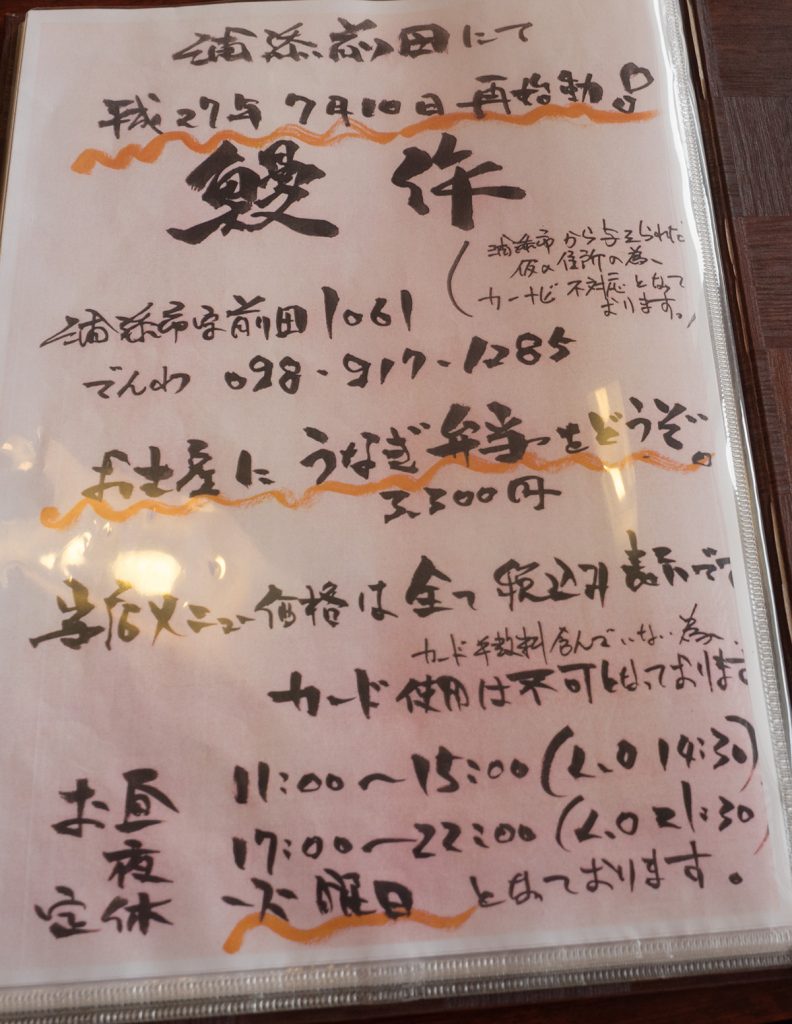 浦添前田にて
平成27年 7月10日 再始動!
鰻 作
(浦添市から与えられた
仮の住所の為、
カーナビ不対応となって
おります。)
浦添市字前田1061
でんわ 098-917-1285
お土産に うなぎ弁当をどうぞ。
3,300円
当店メニュー価格は全て税込み表示です
カード手数料含んでいない為、
カード使用は不可となっております
お昼 11:00〜15:00(L.O 14:30)
夜 17:00〜22:00(L.O 21:30)
定休 火曜日となっております。